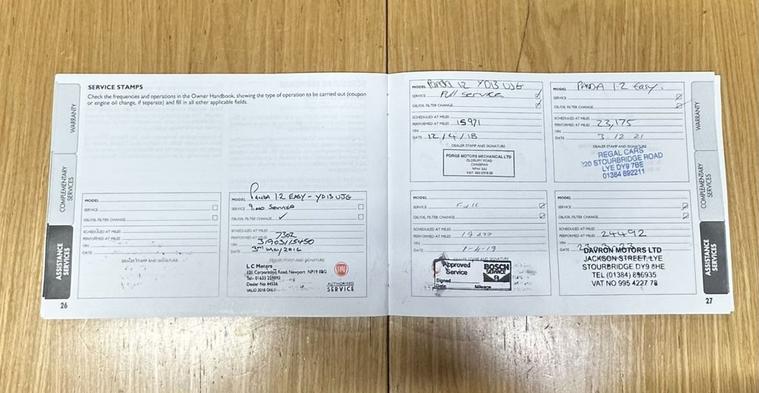 SERVICE STAMPS
Check the frequencies and operations in the Owner Handbook, showing the type of operation to be carried out (coupon
or engine oil change, if seperate) and fill in all other applicable fields.
WARRANTY
COMPLEMENTARY
SERVICES
ASSISTANCE
SERVICES
26
MODEL
SERVICE
OIL/OIL FILTER CHANGE
SCHEDULED AT MILES
PERFORMED AT MILES
DATE
DEALER STAMP AND SIGNATURE
MODEL PANDA 12 EASY - YD13 UJG
SERVICE 2ND SERVICE
OIL/OIL FILTER CHANGE ✓
SCHEDULED AT MILES
PERFORMED AT MILES 7302
DATE 3rd May 2016
L C Motors
Newport NP19
VALID 2016 ONLY
FIAT
AUTHORISED
SERVICE
MODEL PANDA 12 YD13 UJG
SERVICE Full Service
OIL/OIL FILTER CHANGE
SCHEDULED AT MILES
PERFORMED AT MILES 15971
DATE 12/4/18
DEALER STAMP AND SIGNATURE
FORGE MOTORS MECHANICAL LTD
MODEL PANDA 1.2 Easy.
SERVICE
OIL/OIL FILTER CHANGE
SCHEDULED AT MILES
PERFORMED AT MILES 23,175
DATE 3.12.21
DEALER STAMP AND SIGNATURE
REGAL CARS
STOURBRIDGE ROAD
LYE DY9 7BE
01384 892211
MODEL
SERVICE Full
OIL/OIL FILTER CHANGE
SCHEDULED AT MILES
PERFORMED AT MILES
DATE 1-4-19
DEALER STAMP AND SIGNATURE
Approved
Service
Signed
Mileage
BOSCH
SERVICE
MODEL
SERVICE
OIL/OIL FILTER CHANGE
SCHEDULED AT MILES
PERFORMED AT MILES 24492
DATE
DAVRON MOTORS LTD
JACKSON STREET, LYE
STOURBRIDGE DY9 8HE
TEL (01384) 896935
VAT NO 995 4227 78
WARRANTY
COMPLEMENTARY
SERVICES
ASSISTANCE
SERVICES
27